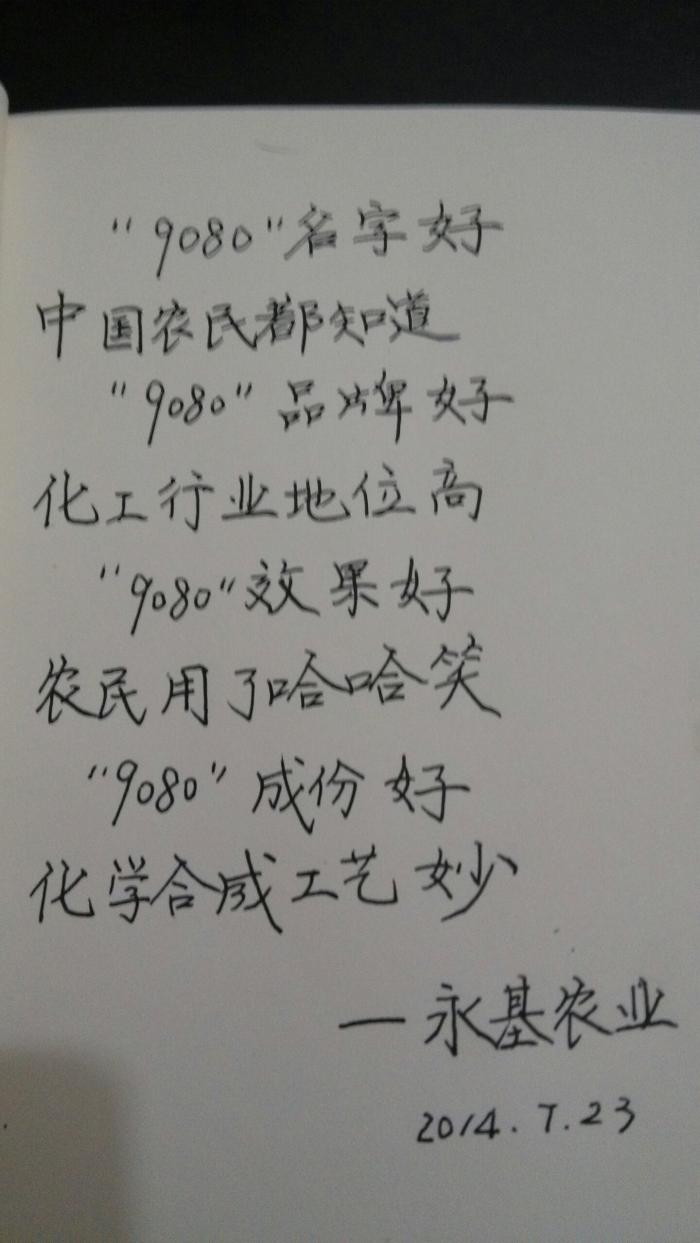 "9080"名字好
中国农民都知道
"9080"品牌好
化工行业地位高
"9080"效果好
农民用了哈哈笑
"9080"成份好
化学合成工艺妙
—永基农业
2014.7.23